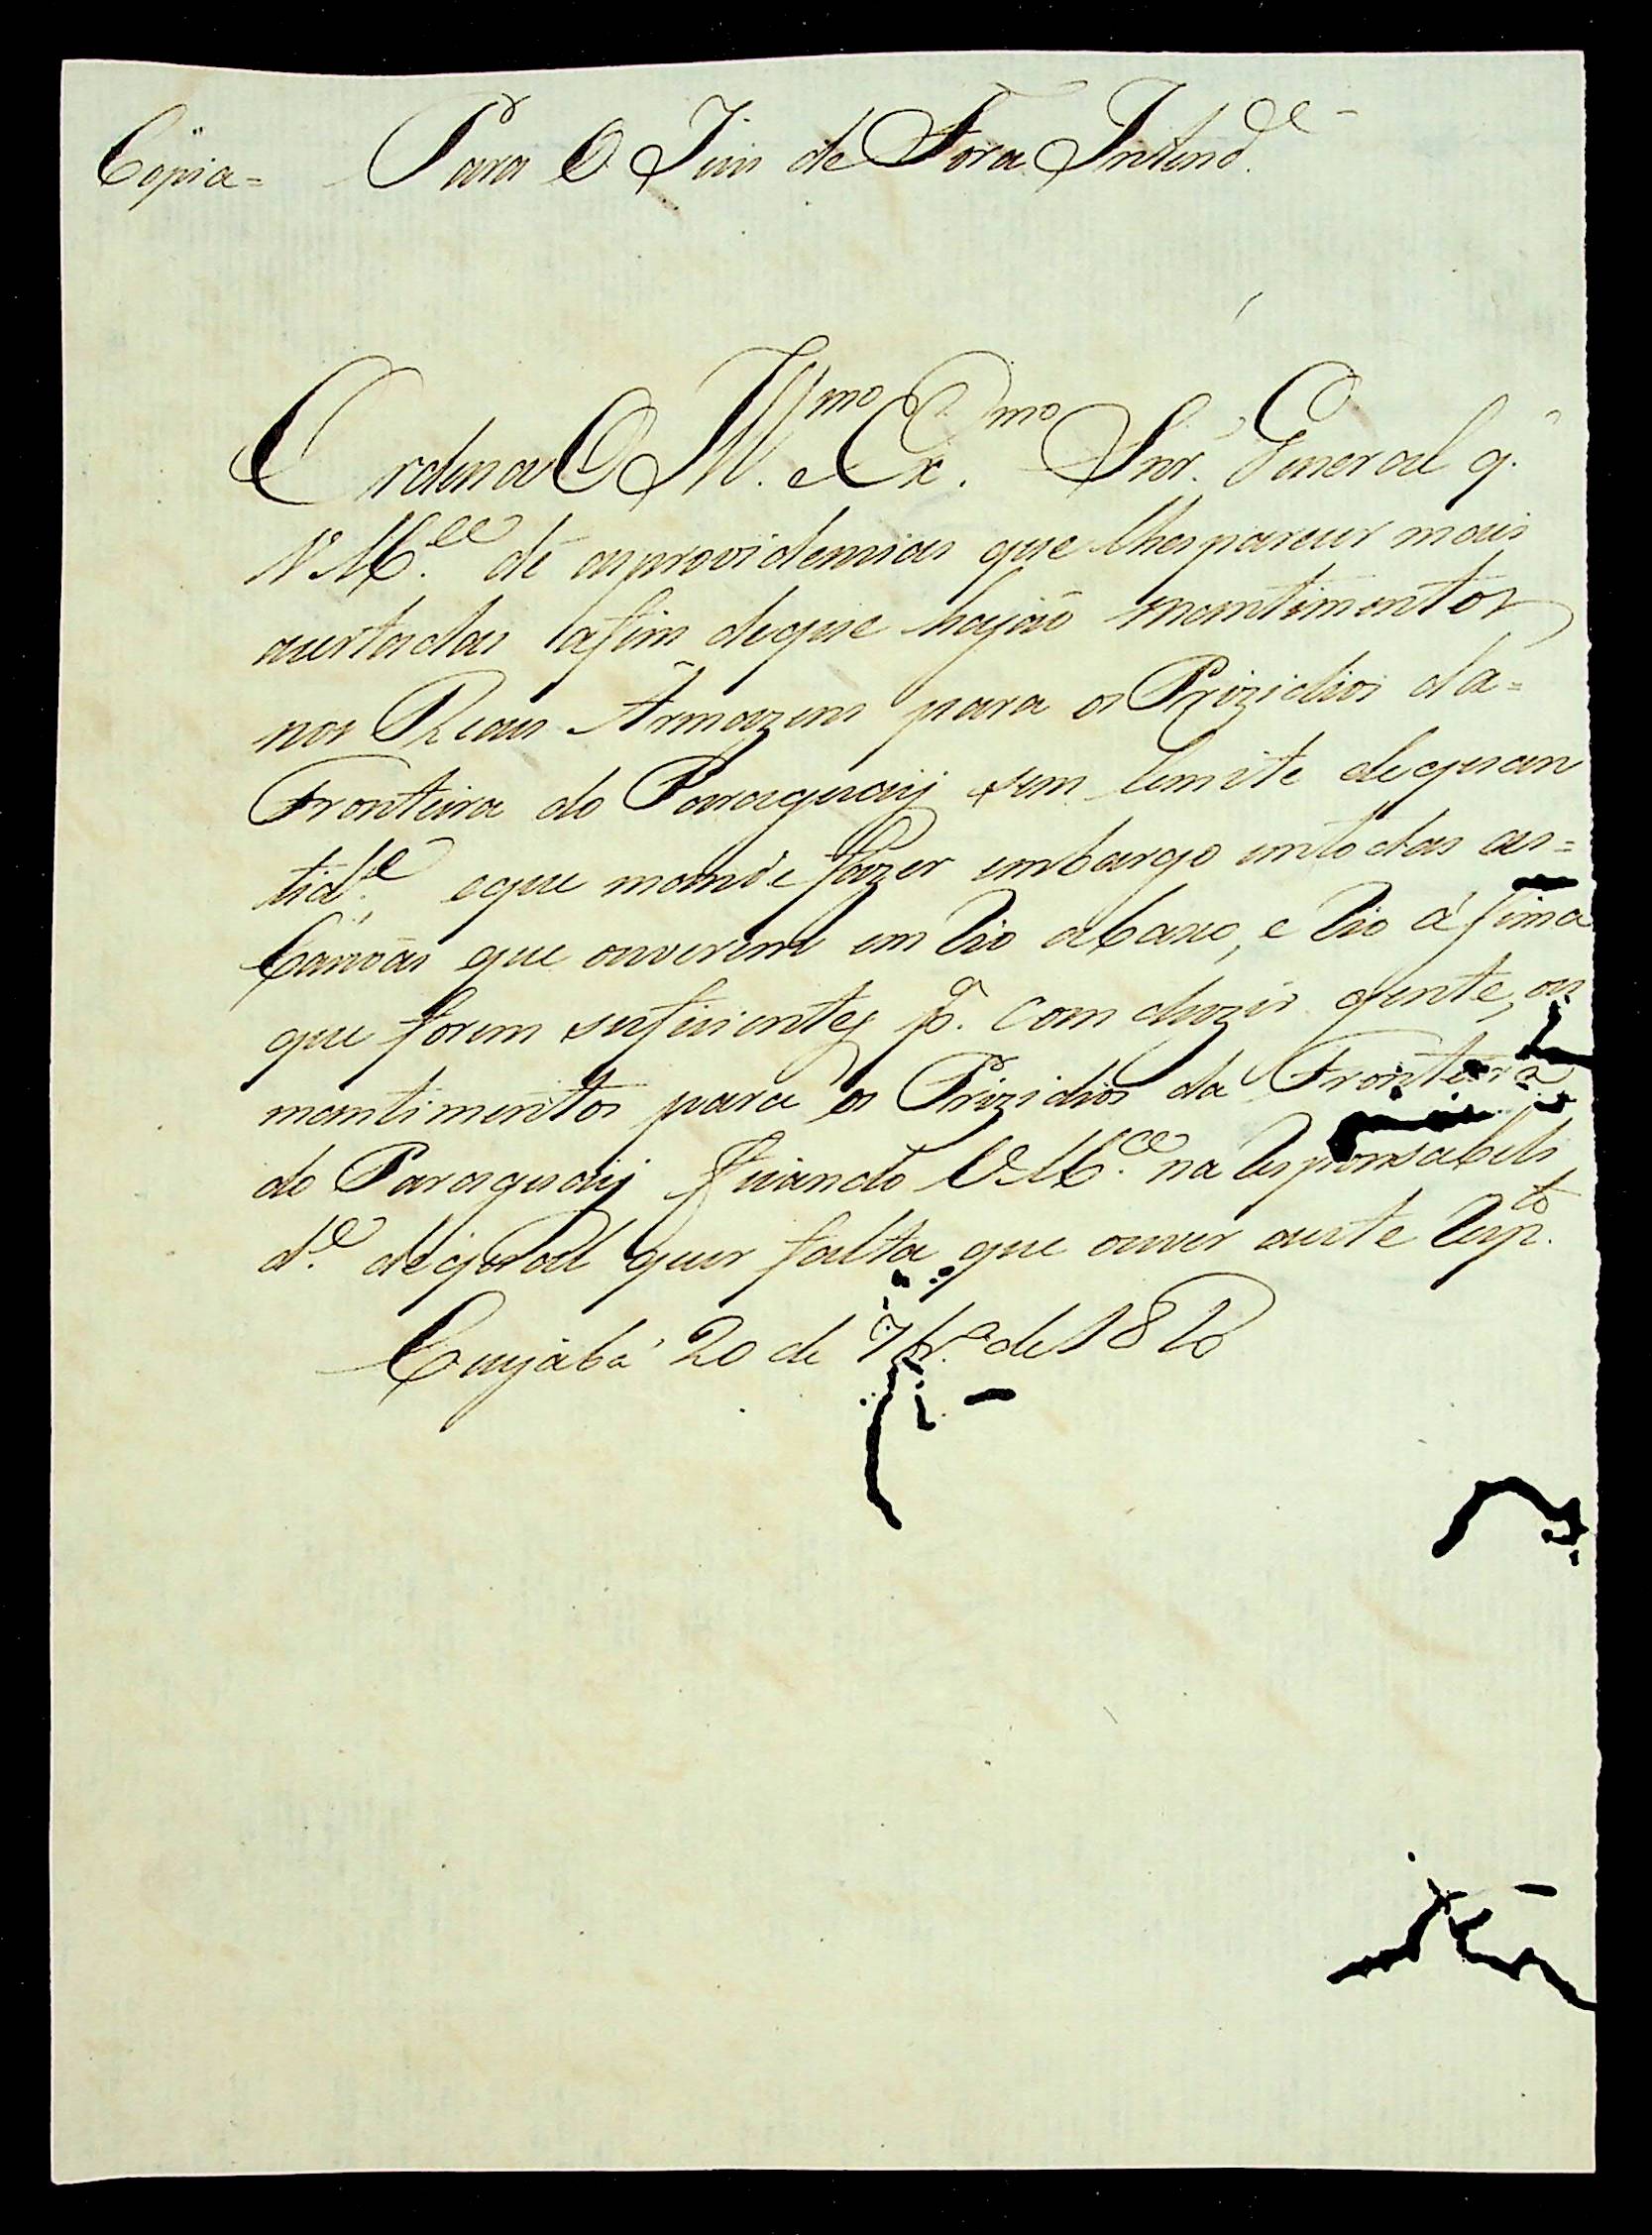 Copia= Para O Juis de Fora Intend.de
Ordena O Ill.mo e Ex.mo Snr. General q.
V M.ce dê as providencias que lhes parecer mais
acertadas afim deque hajaõ mantimentos
nos Reais Armazens para os Prizidios da=
Fronteira do Paraguaij sem lemite dequan
tid.e eque mande fazer embargo emtodas as=
Canoas que ouverem em Rio abaxo, e Rio asima
que forem suficientes p.a comduzir gente, ou
mantimentos para os Prizidios da Fronteira
do Paraguaij ficando V M.ce na Responsabeli
d.e dequal quer falta que ouver aeste Resp.to
Cuyabá 20 de 7br.o de 1820